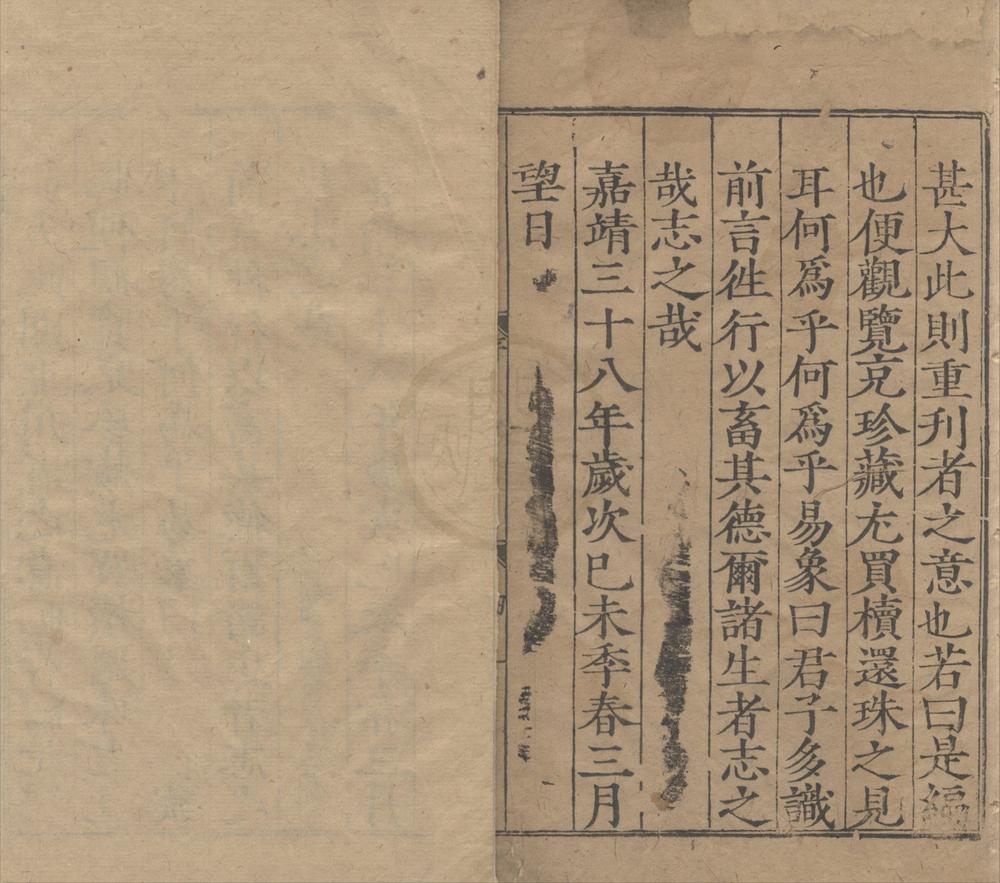 甚大此則重刊者之意也若曰是編
也便觀覽克珍藏尤買櫝還珠之見
耳何爲乎何爲乎易象曰君子多識
前言徃行以畜其德爾諸生者志之
哉志之哉
嘉靖三十八年歲次巳未季春三月
望日